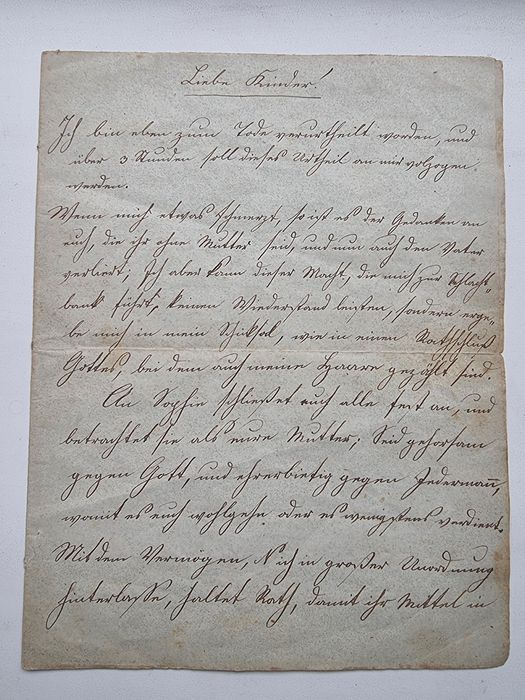 Liebe Kinder!
Ich bin eben zum Tode verurtheilt worden, und
über 3 Stunden soll dieses Urtheil an mir volzogen
werden.
Wenn mich etwas schmerzt, so ist es der Gedanken an
euch, die ihr ohne Mutter seid, und nun auch den Vater
verliert; Ich aber kann dieser Macht, die mich zur Schlacht-
bank führt, keinen Wiederstand leisten, sondern erge-
be mich in mein Schiksal, wie in einen Rathschluß
Gottes, bei dem auch meine Haare gezählt sind.
An Sophie schließet euch alle fest an, und
betrachtet sie als eure Mutter; Seid gehorsam
gegen Gott, und ehrerbietig gegen Jedermann̄,
womit es euch wohlgehn oder es wenigstens verdient.
Mit dem Vermögen, ich in großer Unordnung
hinterlasse, haltet Rath, damit ihr Mittel in